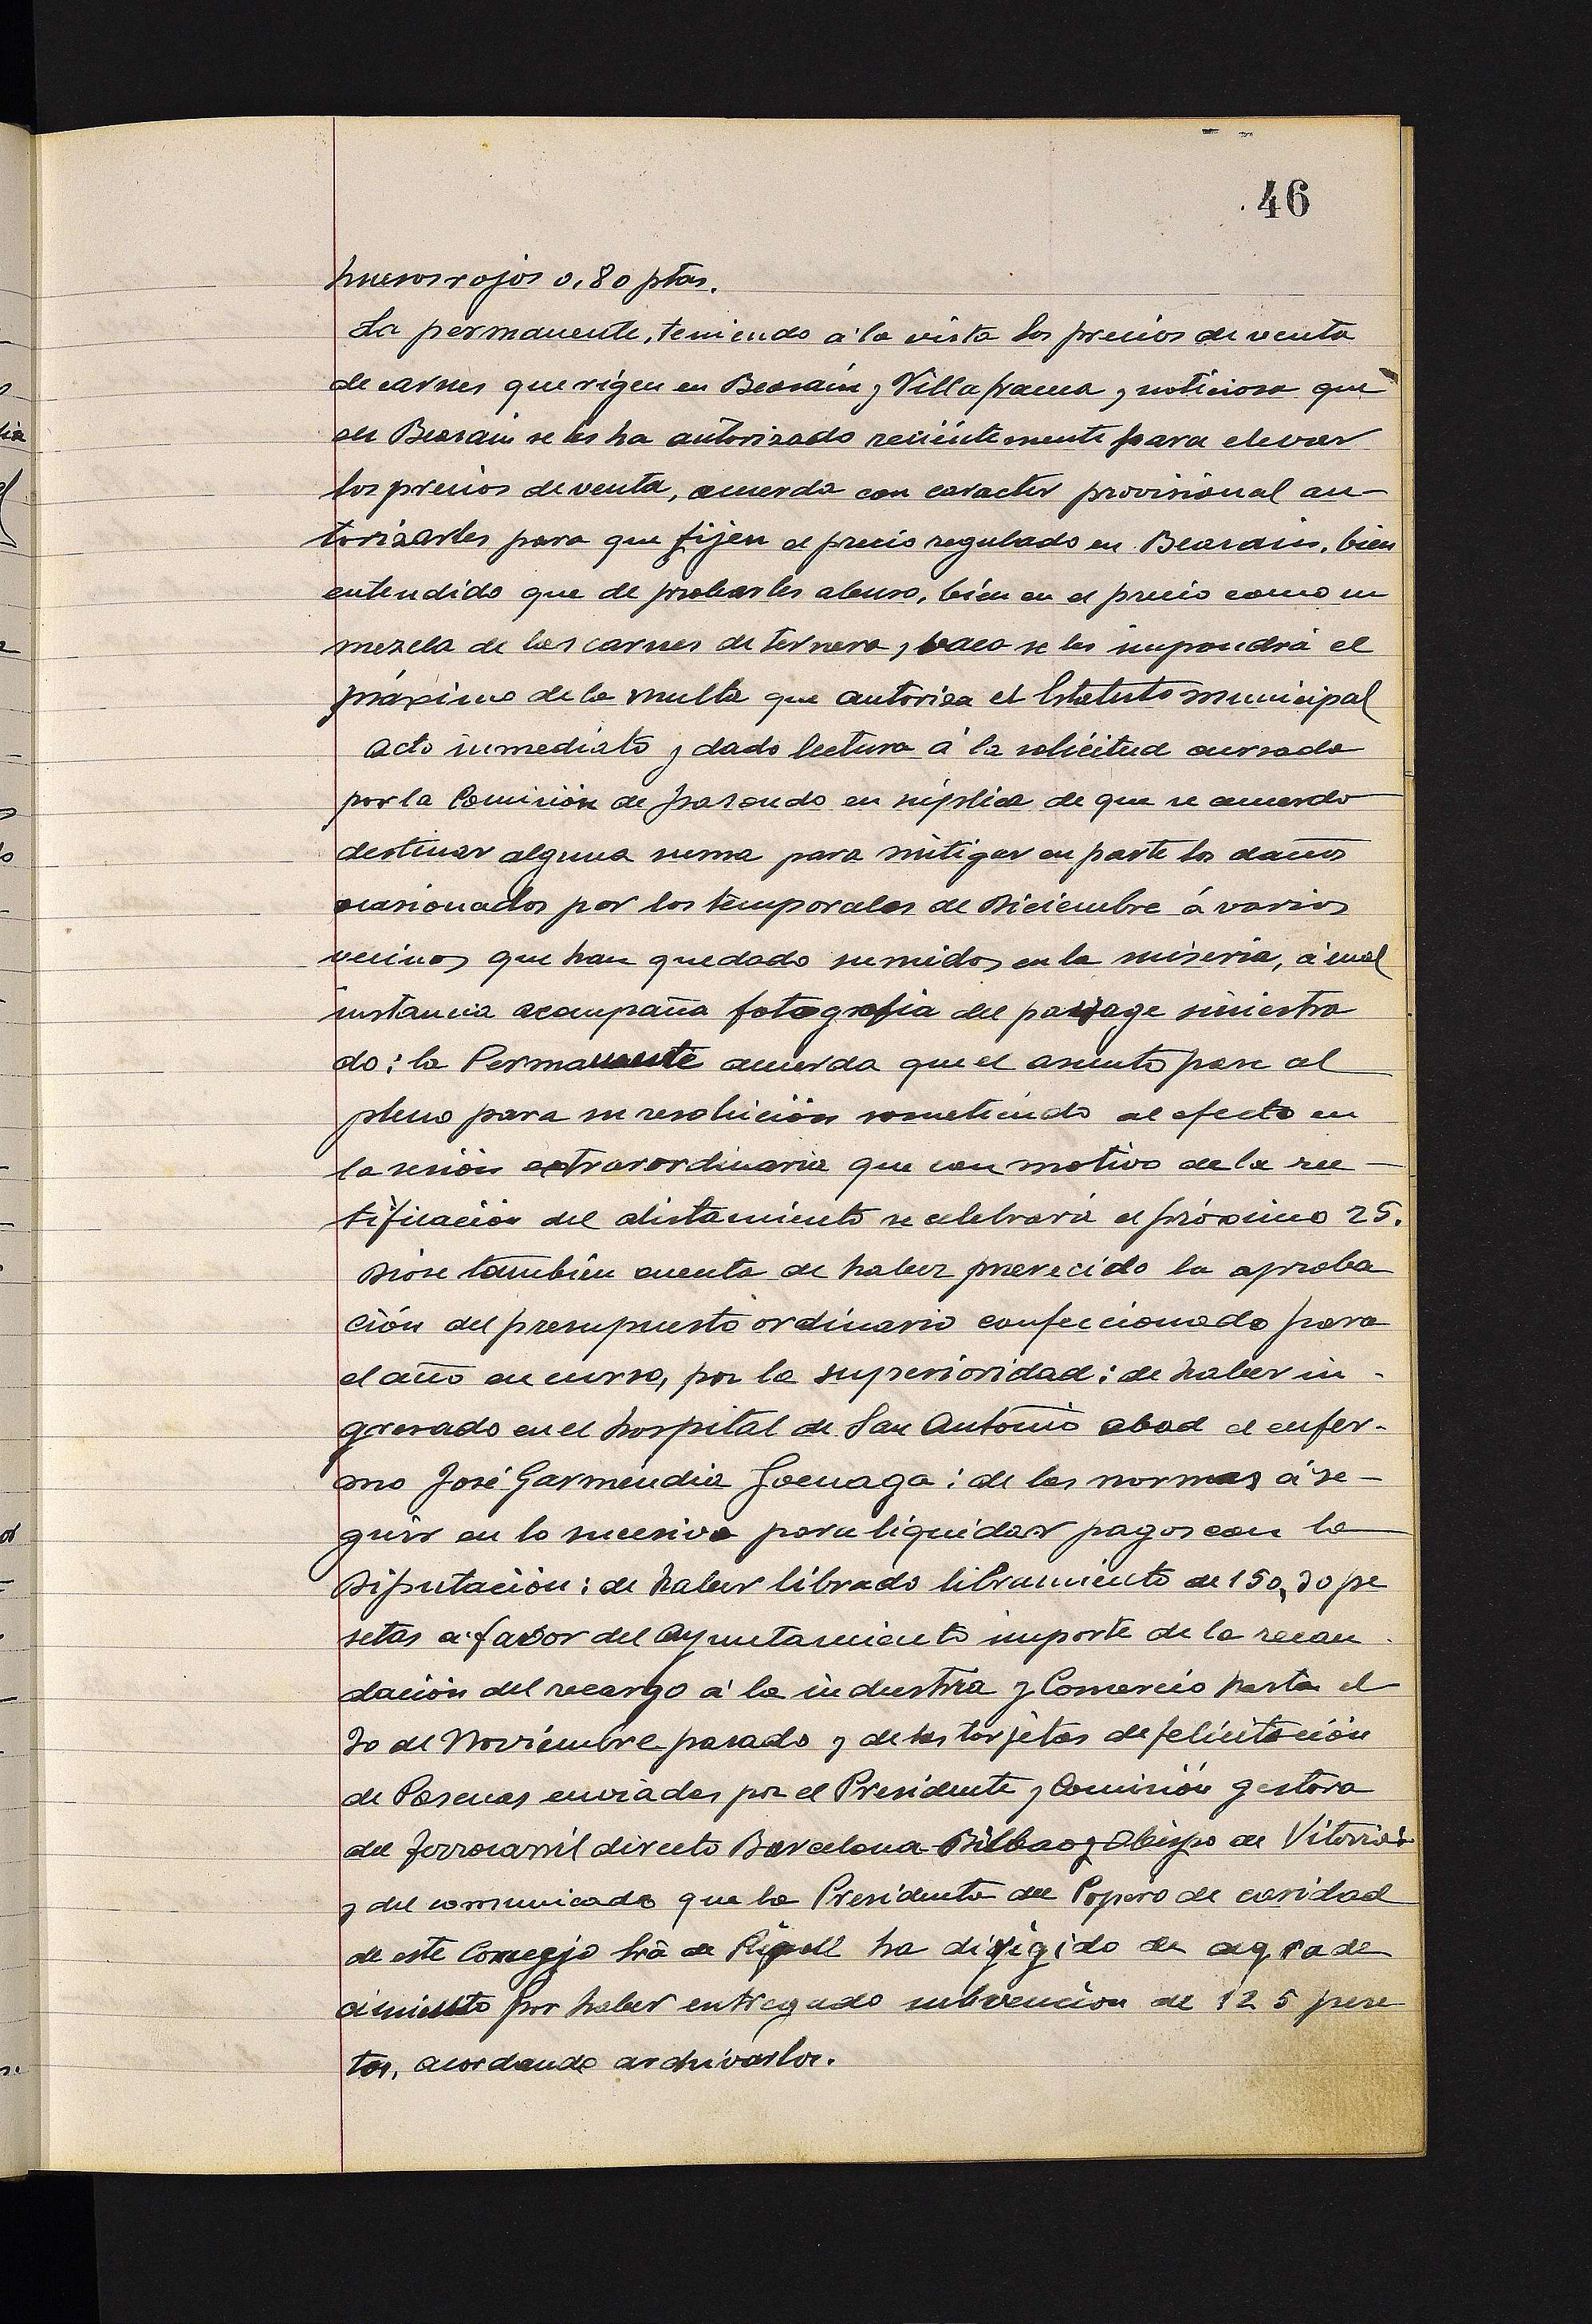 46
huesos rojos 0,80 ptas.
La permanente, teniendo á la vista los precios de venta
de carnes que rigen en Beasain y Villafranca y noticiosa que
en Beasain se les ha autorizado recientemente para elevar
los precios de venta, acuerda con caracter provisional au-
torizarles para que fijen el precio regulado en Beasain, bien
entendido que de probarles abuso, bien en el precio como en
mezcla de las carnes de ternera y vaca se les impondrá el
máximo de la multa que autoriza el Estatuto municipal
Acto inmediato y dado lectura á la solicitud cursada
por la Comisión de en súplica de que se acuerdo
destinar alguna suma para mitigar en parte los daños
ocasionados por los temporales de Diciembre á varios
vecinos que han quedado sumidos en la miseria, á cual
instancia acompaña fotografia del paisage siniestra
do; la Permanente acuerda que el asunto pase al
pleno para su resolución sometiendo al efecto en
la sesión extraordinaria que con motivo de la rec-
tificación del alistamiento se celebrará el próximo 25.
Dióse también cuenta de haber merecido la aproba
ción del presupuesto ordinario confeccionado para
el año en curso, por la superioridad: de haber in-
gresado en el hospital de San Antonio abad el enfer-
mo José Garmendia Goenaga: de las normas á se-
guir en lo sucesivo para liquidar pagos con la
Diputación: de haber librado libramiento de 150,30 pe
setas a favor del Ayuntamiento importe de la recau-
dación del recargo á la industria y Comercio hasta el
30 de Noviembre pasado y de las tarjetas de felicitación
de Pascuas enviadas por el Presidente y Comisión gestora
del ferrocarril directo Barcelona-Bilbao y Obispo de Vitoria
y del comunicado que la Presidenta del Ropero de caridad
de este Concejo Sra de Ripoll ha dirigido de agrade
cimiento por haber entregado subvencion de 125 pese
tas, acordando archivarlos.